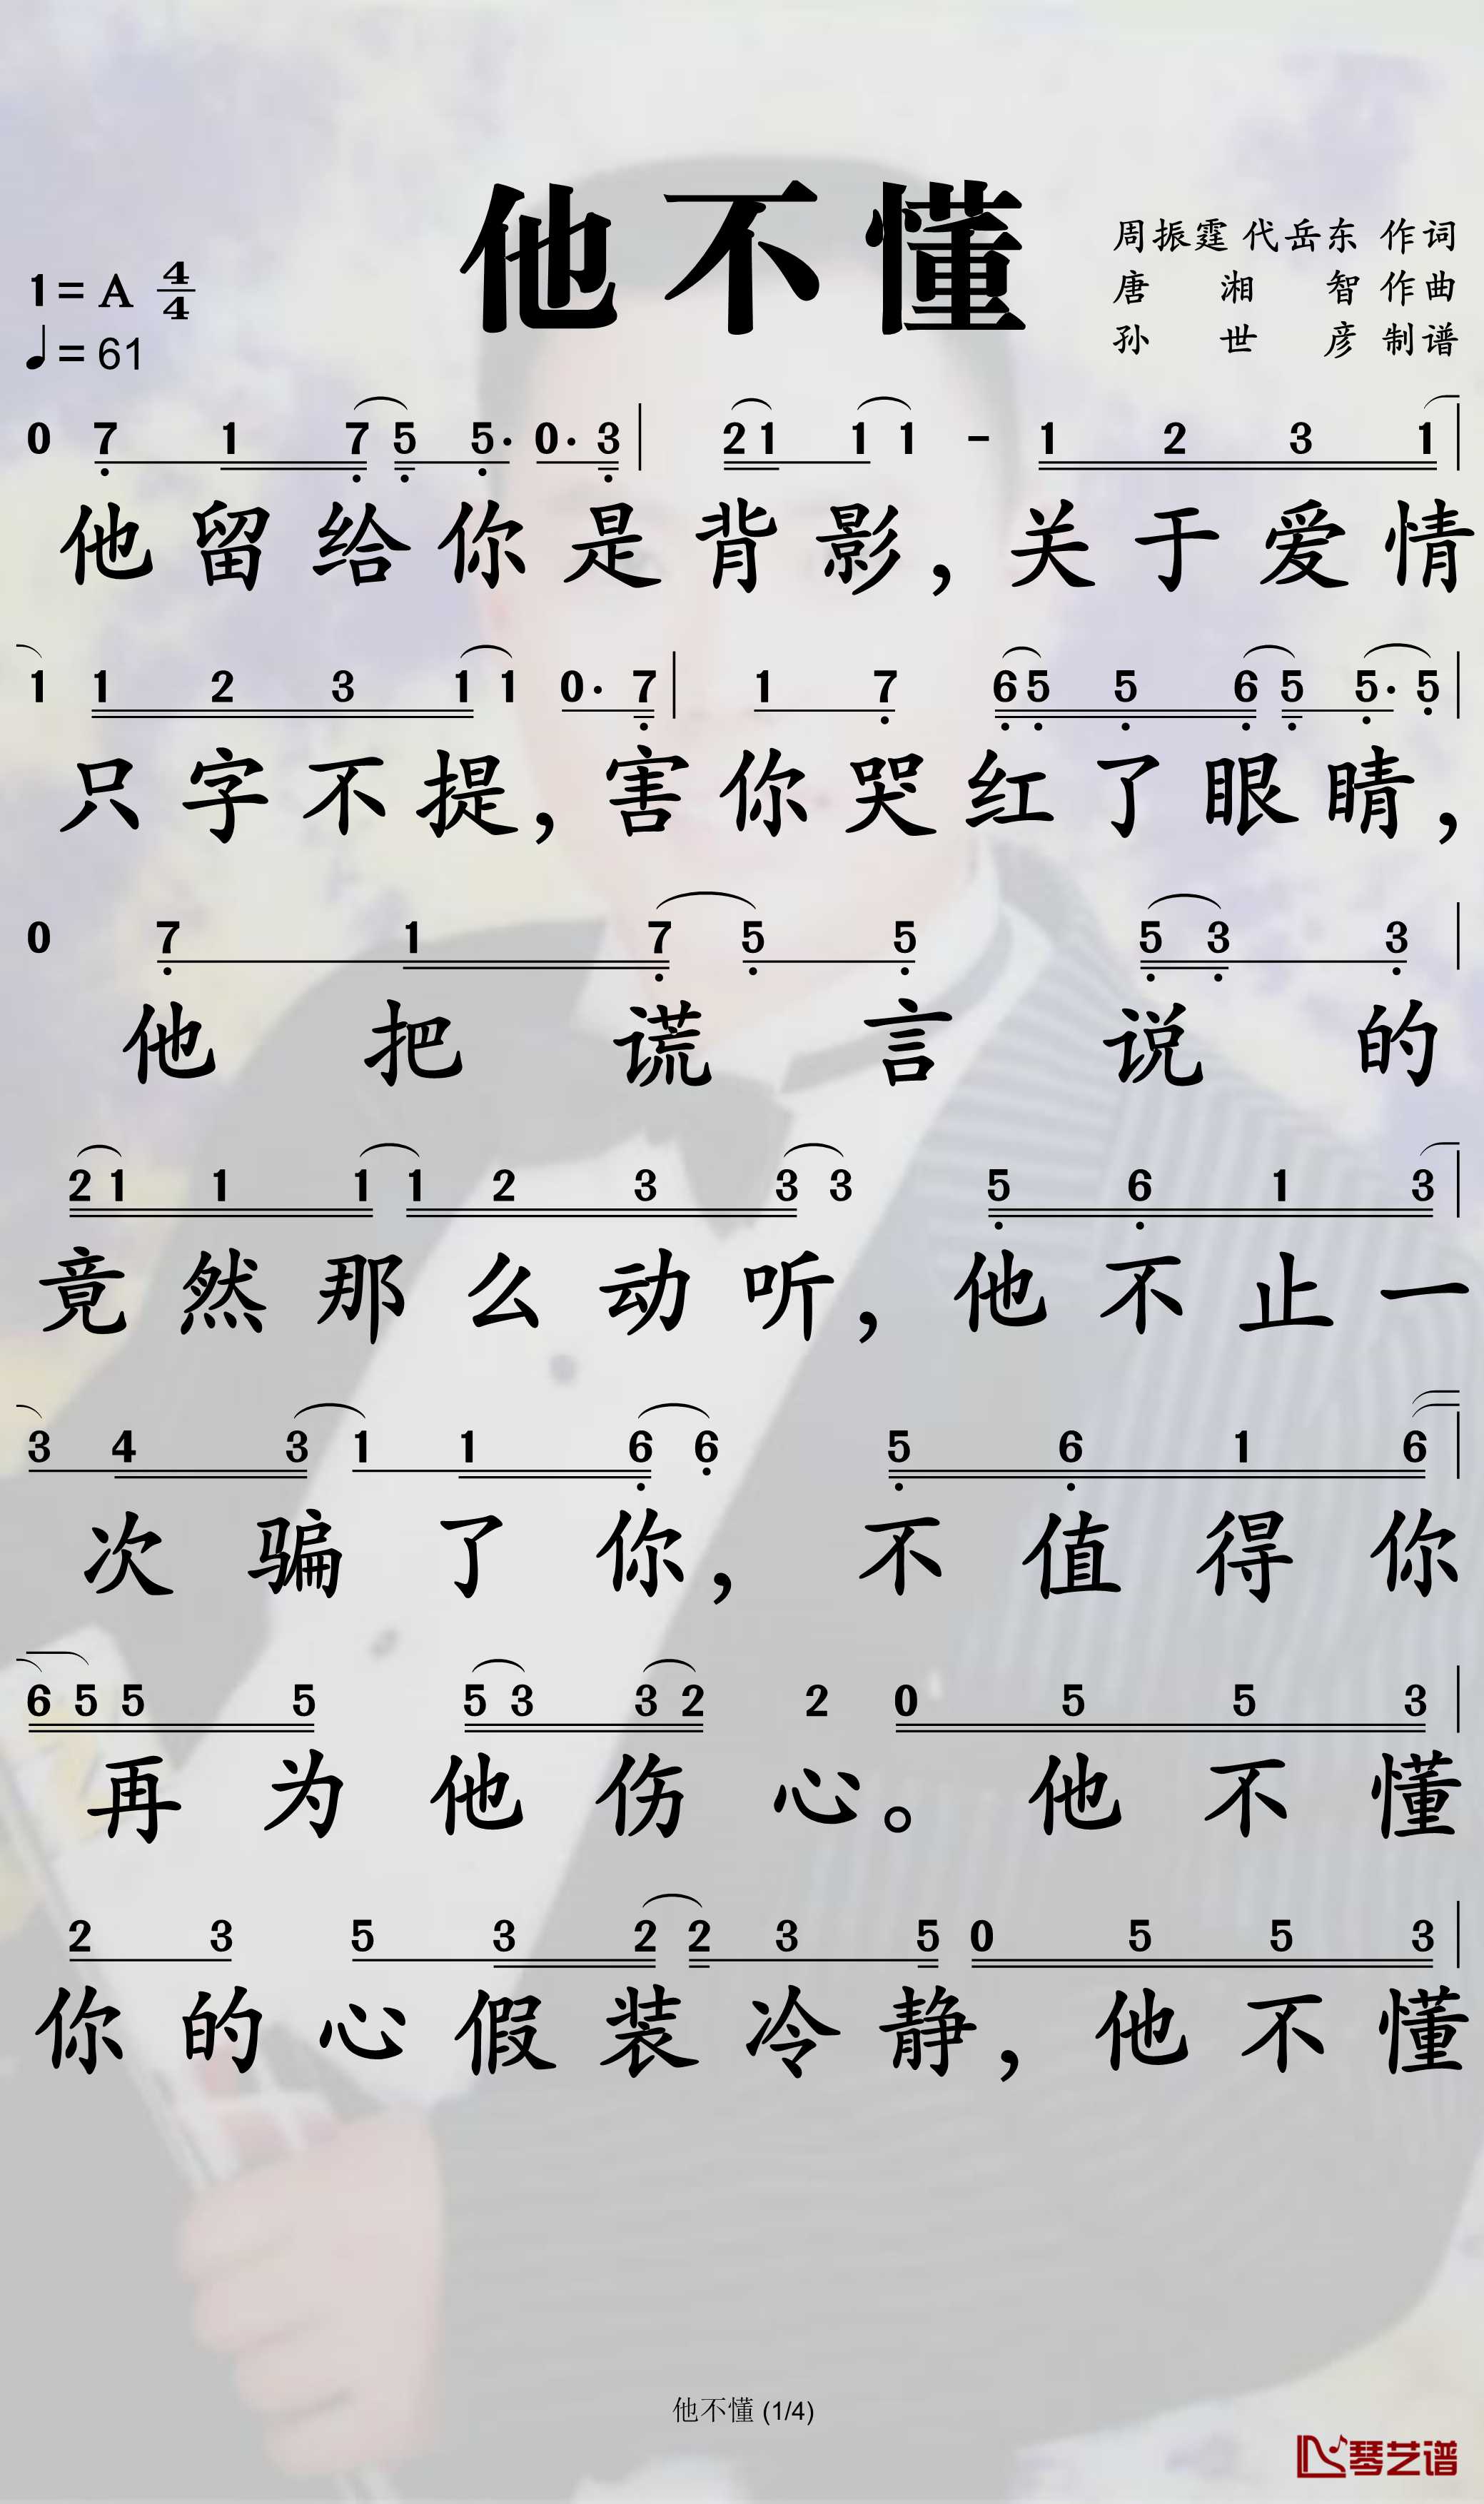 他不懂
周振霆 代岳东 作词
1=A 4/4
唐湘智 作曲
♩=61
孙世彦 制谱
0 7 1 7 5 5· 0· 3 | 2 1 1 1 - 1 2 3 1 |
他留给你是背影，关于爱情
1 1 2 3 1 1 0· 7 | 1 7 6 5 5 6 5 5· 5 |
只字不提，害你哭红了眼睛，
0 7 1 7 5 5 5 3 3 |
他把谎言说的
2 1 1 1 1 2 3 3 3 5 6 1 3 |
竟然那么动听，他不止一
3 4 3 1 1 6 6 5 6 1 6 |
次骗了你，不值得你
6 5 5 5 5 3 3 2 2 0 5 5 3 |
再为他伤心。他不懂
2 3 5 3 2 2 3 5 0 5 5 3 |
你的心假装冷静，他不懂
他不懂 (1/4)
琴艺谱